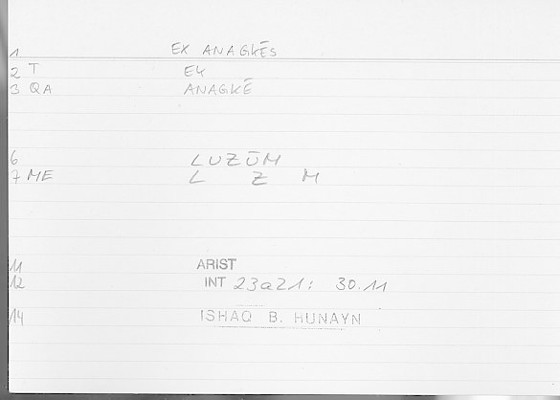 1 EX ANAGKĒS
2 T EK
3 QA ANAGKĒ
6 LUZŪM
7 ME L Z M
11 ARIST
12 INT 23a21: 30.11
14 ISHAQ B. HUNAYN